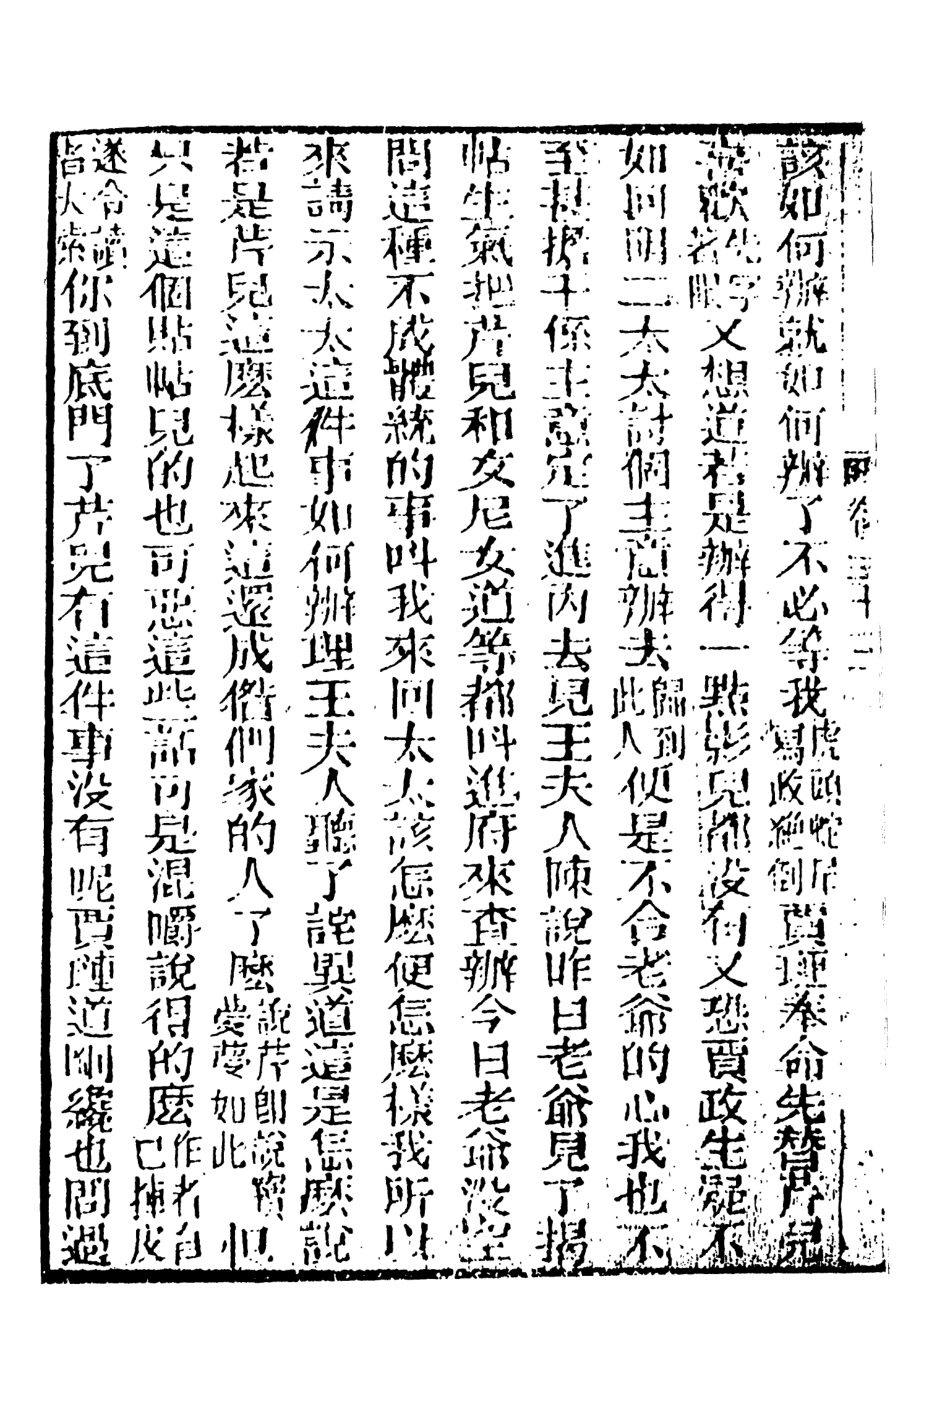 該如何辦就如何辦了不必等我虎頭蛇尾寫政絶倒賈璉奉命先替芹兒
喜歡先字著眼又想道若是辦得一點影兒都没有又恐賈政生疑不
如回明二太太討個主意辦去歸到此人便是不合老爺的心我也不
至甚擔干係主意定了進內去見王夫人陳說昨日老爺見了揭
帖生氣把芹兒和女尼女道等都叫進府來查辦今日老爺没空
問這種不成體統的事叫我來回太太該怎麼便怎麼樣我所以
來請示太太這件事如何辦理王夫人聽了詫異道這是怎麼說
若是芹兒這麼樣起來這還成偺們家的人了麼說芹卽說寳 夢如此但
只是這個貼帖兒的也可惡這些話可是混嚼說得的麼作者自己
遂令讀皆大索你到底問了芹兒有這件事没有呢賈璉道剛纔也問過
卷